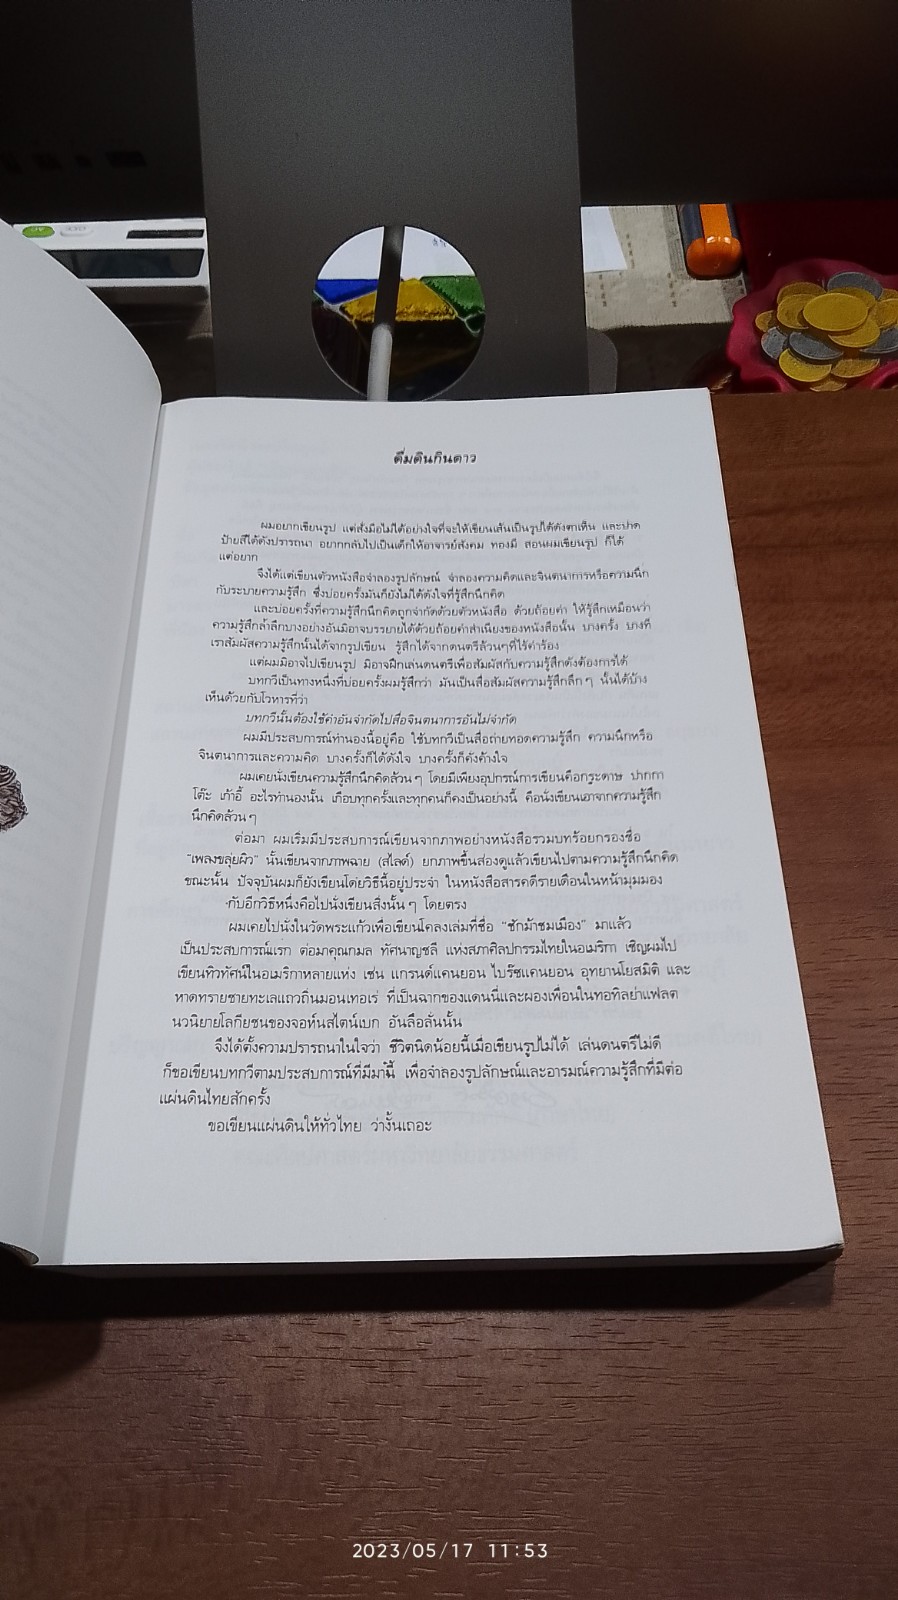 ดื่มดินกินดาว
ผมอยากเขียนรูป แต่สั่งมือไม่ได้อย่างใจที่จะให้เขียนเส้นเป็นรูปได้ดังตาเห็น และปาด
ป้ายสีได้ดังปรารถนา อยากกลับไปเป็นเด็กให้อาจารย์สังคม ทองมี สอนผมเขียนรูป ก็ได้
แต่อยาก
จึงได้แต่เขียนตัวหนังสือจำลองรูปลักษณ์ จำลองความคิดและจินตนาการหรือความนึก
กับระบายความรู้สึก ซึ่งบ่อยครั้งมันก็ยังไม่ได้ดังใจที่รู้สึกนึกคิด
และบ่อยครั้งที่ความรู้สึกนึกคิดถูกจำกัดด้วยตัวหนังสือ ด้วยถ้อยคำ ให้รู้สึกเหมือนว่า
ความรู้สึกล้ำลึกบางอย่างอันมิอาจบรรยายได้ด้วยถ้อยคำสำเนียงของหนังสือนั้น บางครั้ง บางที
เราสัมผัสความรู้สึกนั้นได้จากรูปเขียน รู้สึกได้จากดนตรีล้วนๆที่ไร้คำร้อง
แต่ผมมิอาจไปเขียนรูป มิอาจฝึกเล่นดนตรีเพื่อสัมผัสกับความรู้สึกดังต้องการได้
บทกวีเป็นทางหนึ่งที่บ่อยครั้งผมรู้สึกว่า มันเป็นสื่อสัมผัสความรู้สึกลึก ๆ นั้นได้บ้าง
เห็นด้วยกับโวหารที่ว่า
บทกวีนั้นต้องใช้คำอันจำกัดไปสื่อจินตนาการอันไม่จำกัด
ผมมีประสบการณ์ทำนองนี้อยู่คือ ใช้บทกวีเป็นสื่อถ่ายทอดความรู้สึก ความนึกหรือ
จินตนาการและความคิด บางครั้งก็ได้ดังใจ บางครั้งก็คั่งค้างใจ
ผมเคยนั่งเขียนความรู้สึกนึกคิดล้วน ๆ โดยมีเพียงอุปกรณ์การเขียนคือกระดาษ ปากกา
โต๊ะ เก้าอี้ อะไรทำนองนั้น เกือบทุกครั้งและทุกคนก็คงเป็นอย่างนี้ คือนั่งเขียนเอาจากความรู้สึก
นึกคิดล้วน ๆ
ต่อมา ผมเริ่มมีประสบการณ์เขียนจากภาพอย่างหนังสือรวมบทร้อยกรองชื่อ
"เพลงขลุ่ยผิว" นั้นเขียนจากภาพฉาย (สไลด์) ยกภาพขึ้นส่องดูแล้วเขียนไปตามความรู้สึกนึกคิด
ขณะนั้น ปัจจุบันผมก็ยังเขียนโดยวิธีนี้อยู่ประจำ ในหนังสือสารคดีรายเดือนในหน้ามุมมอง
กับอีกวิธีหนึ่งคือไปนั่งเขียนสิ่งนั้น ๆ โดยตรง
ผมเคยไปนั่งในวัดพระแก้วเพื่อเขียนโคลงเล่มที่ชื่อ "ชักม้าชมเมือง" มาแล้ว
เป็นประสบการณ์แรก ต่อมาคุณกมล ทัศนาญชลี แห่งสภาศิลปกรรมไทยในอเมริกา เชิญผมไป
เขียนทิวทัศน์ในอเมริกาหลายแห่ง เช่น แกรนด์แคนยอน ไบร๊ซแคนยอน อุทยานโยสมิติ และ
หาดทรายชายทะเลแถวถิ่นมอนเทอเร่ ที่เป็นฉากของแดนนี่และผองเพื่อนในทอทิลย่าแฟลต
นวนิยายโลกียชนของจอห์นสไตน์เบก อันลือลั่นนั้น
จึงได้ตั้งความปรารถนาในใจว่า ชีวิตนิดน้อยนี้เมื่อเขียนรูปไม่ได้ เล่นดนตรีไม่ดี
ก็ขอเขียนบทกวีตามประสบการณ์ที่มีมานี้ เพื่อจำลองรูปลักษณ์และอารมณ์ความรู้สึกที่มีต่อ
แผ่นดินไทยสักครั้ง
ขอเขียนแผ่นดินให้ทั่วไทย ว่างั้นเถอะ
2023/05/17 11:53